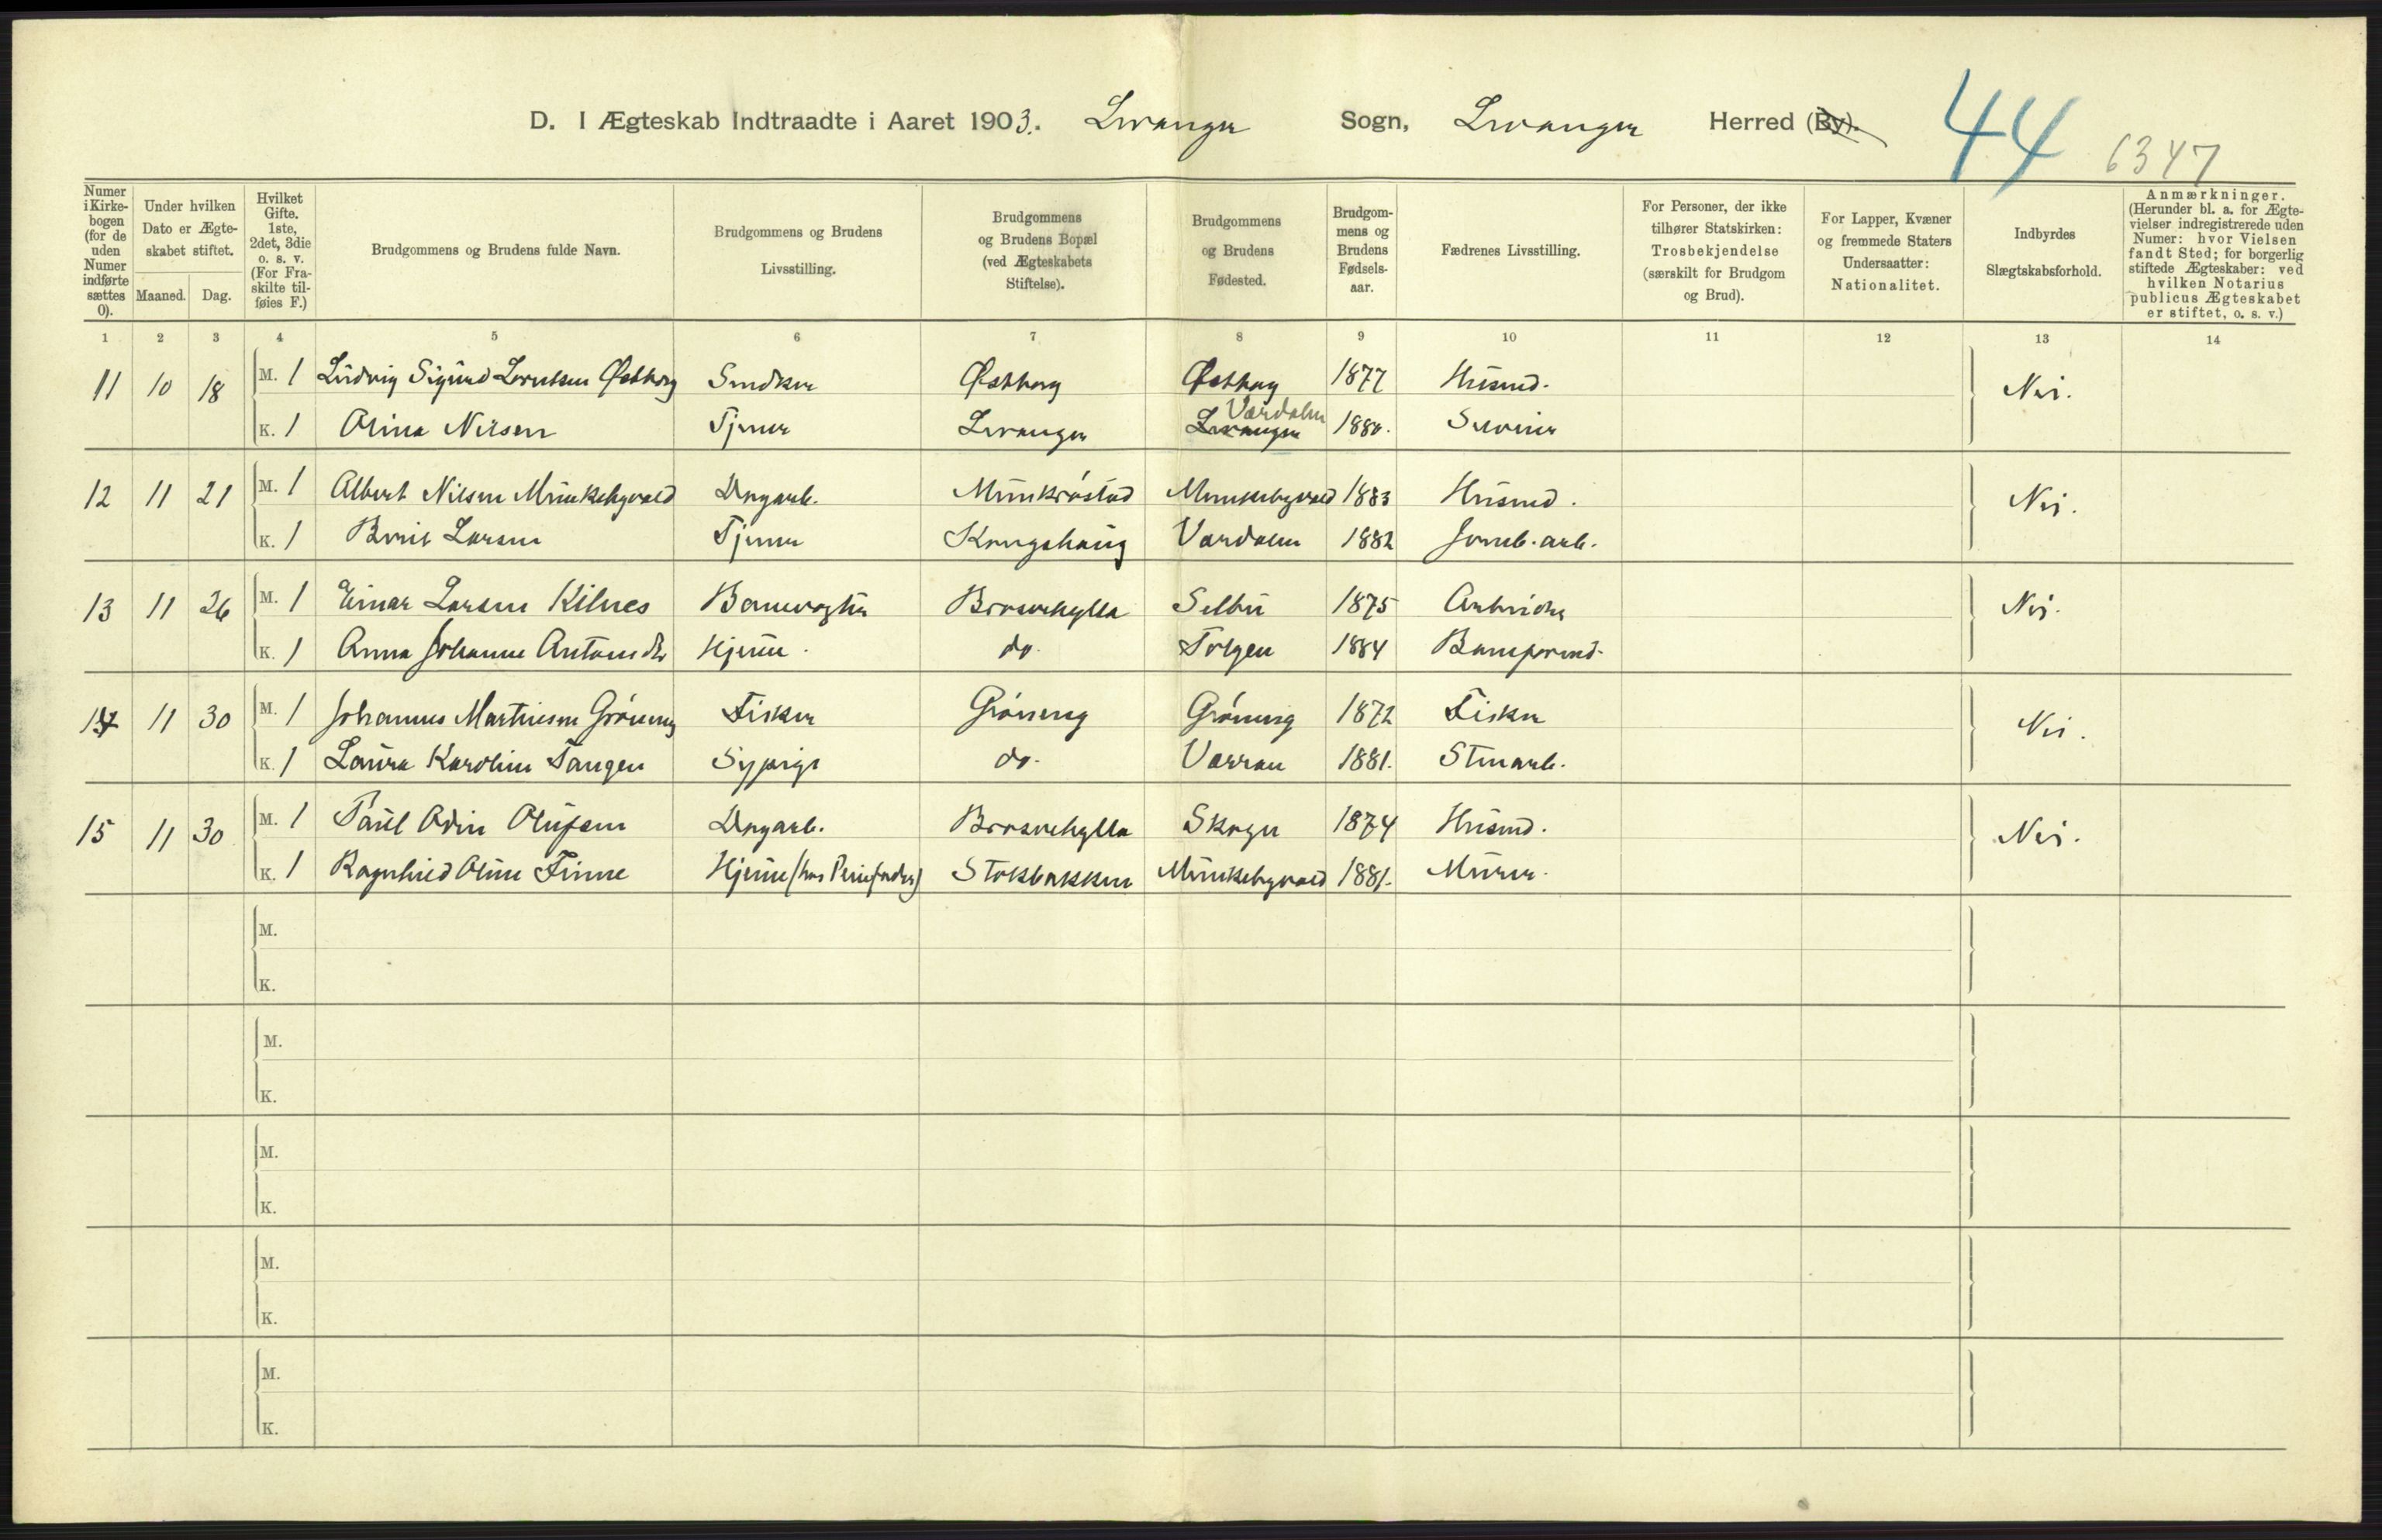 D. I Ægteskab Indtraadte i Aaret 1903. Levanger Sogn, Levanger Herred (By). 44 6347
Numer i Kirkebogen (for de uden Numer indførte sættes 0).
Under hvilken Dato er Ægteskabet stiftet. Maaned. Dag.
Hvilket Gifte. 1ste, 2det, 3die o. s. v. (For Fraskilte tilføies F.)
Brudgommens og Brudens fulde Navn.
Brudgommens og Brudens Livsstilling.
Brudgommens og Brudens Bopæl (ved Ægteskabets Stiftelse).
Brudgommens og Brudens Fødested.
Brudgommens og Brudens Fødselsaar.
Fædrenes Livsstilling.
For Personer, der ikke tilhører Statskirken: Trosbekjendelse (særskilt for Brudgom og Brud).
For Lapper, Kvæner og fremmede Staters Undersaatter: Nationalitet.
Indbyrdes Slægtskabsforhold.
Anmærkninger. (Herunder bl. a. for Ægtevielser indregistrerede uden Numer: hvor Vielsen fandt Sted; for borgerlig stiftede Ægteskaber: ved hvilken Notarius publicus Ægteskabet er stiftet, o. s. v.)
1 2 3 4 5 6 7 8 9 10 11 12 13 14
11 10 18 M. 1 Ludvig Sigurd Lorntsen Østborg Snedker Østborg Østborg 1877 Husmd. Nei.
K. 1 Olina Nilsen Tjener Levanger Levanger Værdalen 1880.
12 11 21 M. 1 Albert Nilsen Munkebyvald Dagarb. Munkrøstad Munkebyvald 1883 Husmd. Nei.
K. 1 Berit Larsen Tjener Kongshaug Værdalen 1882 Jernb. arb.
13 11 26 M. 1 Einar Larsen Kilnes Banevogter Brasvehylla Selbu 1875 Arbeider Nei.
K. 1 Anna Johanne Antonsdtr Hjemme. do. Tolgen 1884 Baneformd.
14 11 30 M. 1 Johannes Martinsen Grønning Fisker Grønning Grønning 1872 Fisker Nei.
K. 1 Laura Karoline Tangen Sypige do. Værran 1881. Stenarb.
15 11 30 M. 1 Paul Odin Olufsen Dagarb. Brasvehylla Skogn 1874 Husmd. Nei.
K. 1 Ragnhild Oline Finne Hjemme (hos Pleieforældre) Stokbakken Munkebyvald 1881. Murer.
M.
K.
M.
K.
M.
K.
M.
K.
M.
K.